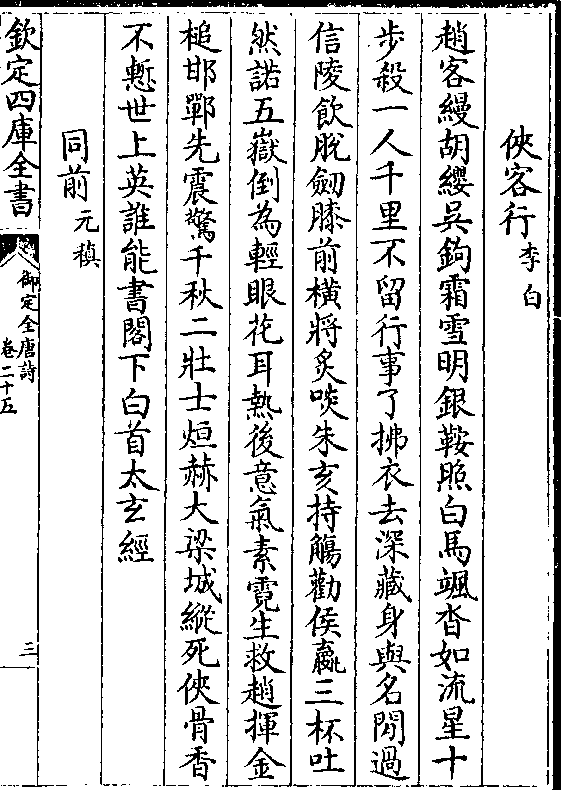 俠客行李白
趙客縵胡纓吳鉤霜雪明銀鞍照白馬颯沓如流星十
步殺一人千里不留行事了拂衣去深藏身與名閒過
信陵飲脫劒膝前橫將炙啖朱亥持觴勸侯嬴三杯吐
然諾五嶽倒為輕眼花耳熱後意氣素霓生救趙揮金
槌邯鄲先震驚千秋二壯士烜赫大梁城縱死俠骨香
不慙世上英誰能書閣下白首太玄經
同前元稹
欽定四庫全書
御定全唐詩
卷二十五
三